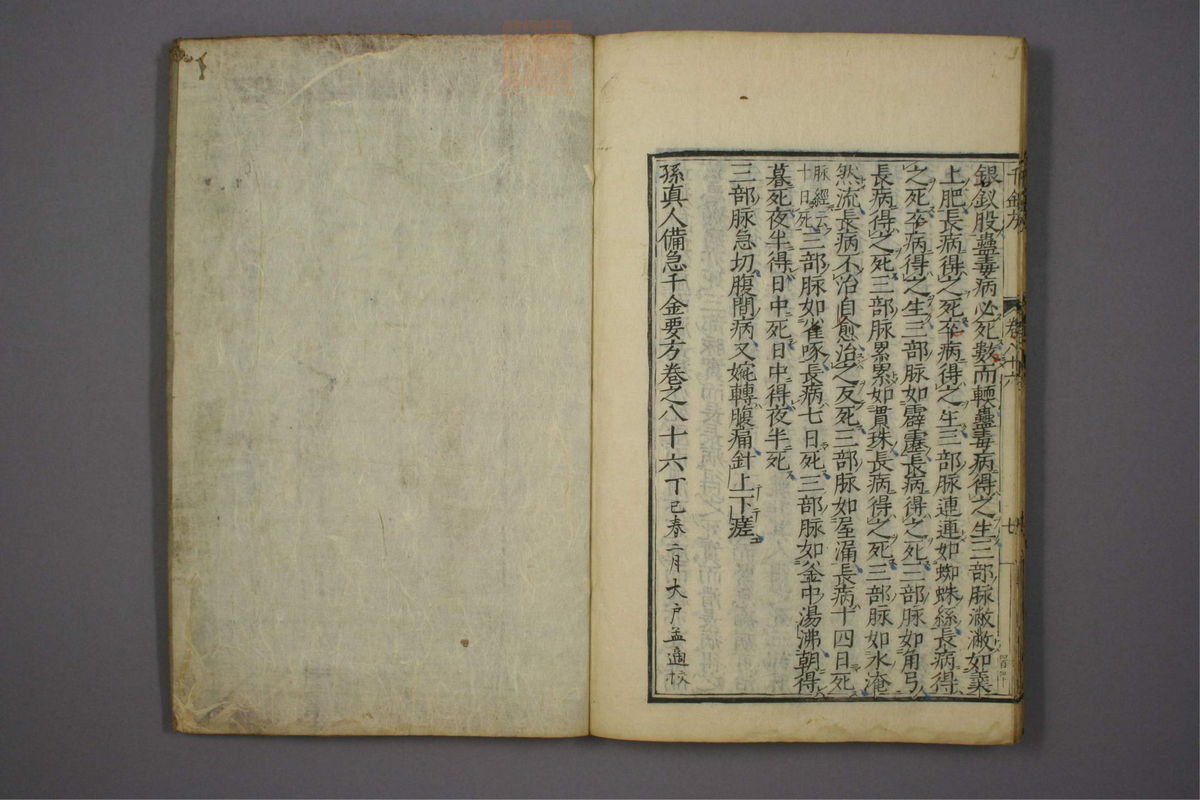 千金方 卷八十六 廿
銀釵股蠱毒病必死數而䡱蠱毒病得之生三部脉潎潎如羹
上肥長病得之死卒病得之生三部脉連連如蜘蛛絲長病得
之死卒病得之生三部脉如霹靂長病得之死三部脉如角弓
長病得之死三部脉累累如貫珠長病得之死三部脉如水淹
然流長病不治自愈治之反死三部脉如屋漏長病十四日死
脉經云
十日死
三部脉如雀啄長病七日死三部脉如釜中湯沸朝得
暮死夜半得日中死日中得夜半死
三部脉急切腹間病又婉轉腹痛針上下瘥
孫真人備急千金要方卷之八十六 丁巳春二月大戶孟適校